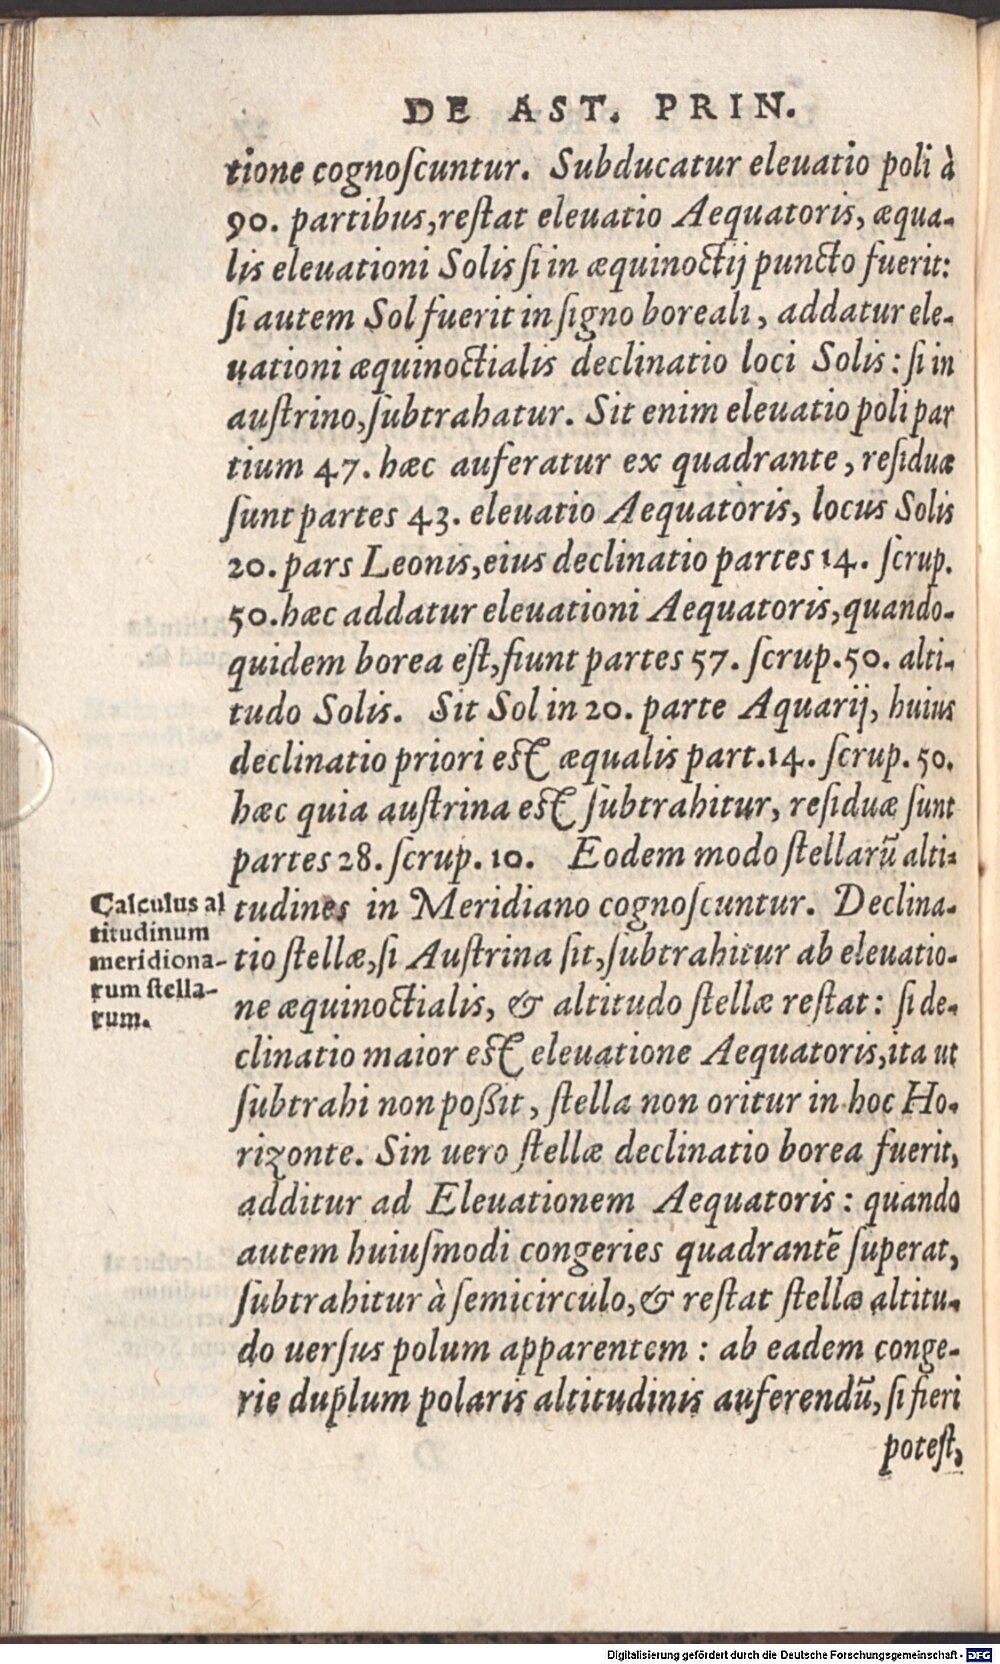 DE AST. PRIN.
tione cognoſcuntur. Subducatur eleuatio poli à
90. partibus, reſtat eleuatio Aequatoris, æqua-
lis eleuationi Solis ſi in æquinoctij puncto fuerit:
ſi autem Sol fuerit in ſigno boreali, addatur ele-
uationi æquinoctialis declinatio loci Solis: ſi in
auſtrino, ſubtrahatur. Sit enim eleuatio poli par
tium 47. hæc auferatur ex quadrante, reſiduæ
ſunt partes 43. eleuatio Aequatoris, locus Solis
20. pars Leonis, eius declinatio partes 14. ſcrup.
50. hæc addatur eleuationi Aequatoris, quando-
quidem borea eſt, fiunt partes 57. ſcrup. 50. alti-
tudo Solis. Sit Sol in 20. parte Aquarij, huius
declinatio priori eſt æqualis part. 14. ſcrup. 50.
hæc quia auſtrina eſt ſubtrahitur, reſiduæ ſunt
partes 28. ſcrup. 10. Eodem modo ſtellarū alti-
tudines in Meridiano cognoſcuntur. Declina-
tio ſtellæ, ſi Auſtrina ſit, ſubtrahitur ab eleuatio-
ne æquinoctialis, & altitudo ſtellæ reſtat: ſi de-
clinatio maior eſt eleuatione Aequatoris, ita ut
ſubtrahi non poſsit, ſtella non oritur in hoc Ho-
rizonte. Sin uero ſtellæ declinatio borea fuerit,
additur ad Eleuationem Aequatoris: quando
autem huiuſmodi congeries quadrantē ſuperat,
ſubtrahitur à ſemicirculo, & reſtat ſtellæ altitu-
do uerſus polum apparentem: ab eadem conge-
rie duplum polaris altitudinis auferendū, ſi fieri
poteſt,
Calculus al
titudinum
meridiona-
rum ſtella-
rum.
Digitalisierung gefördert durch die Deutsche Forschungsgemeinschaft - DFG